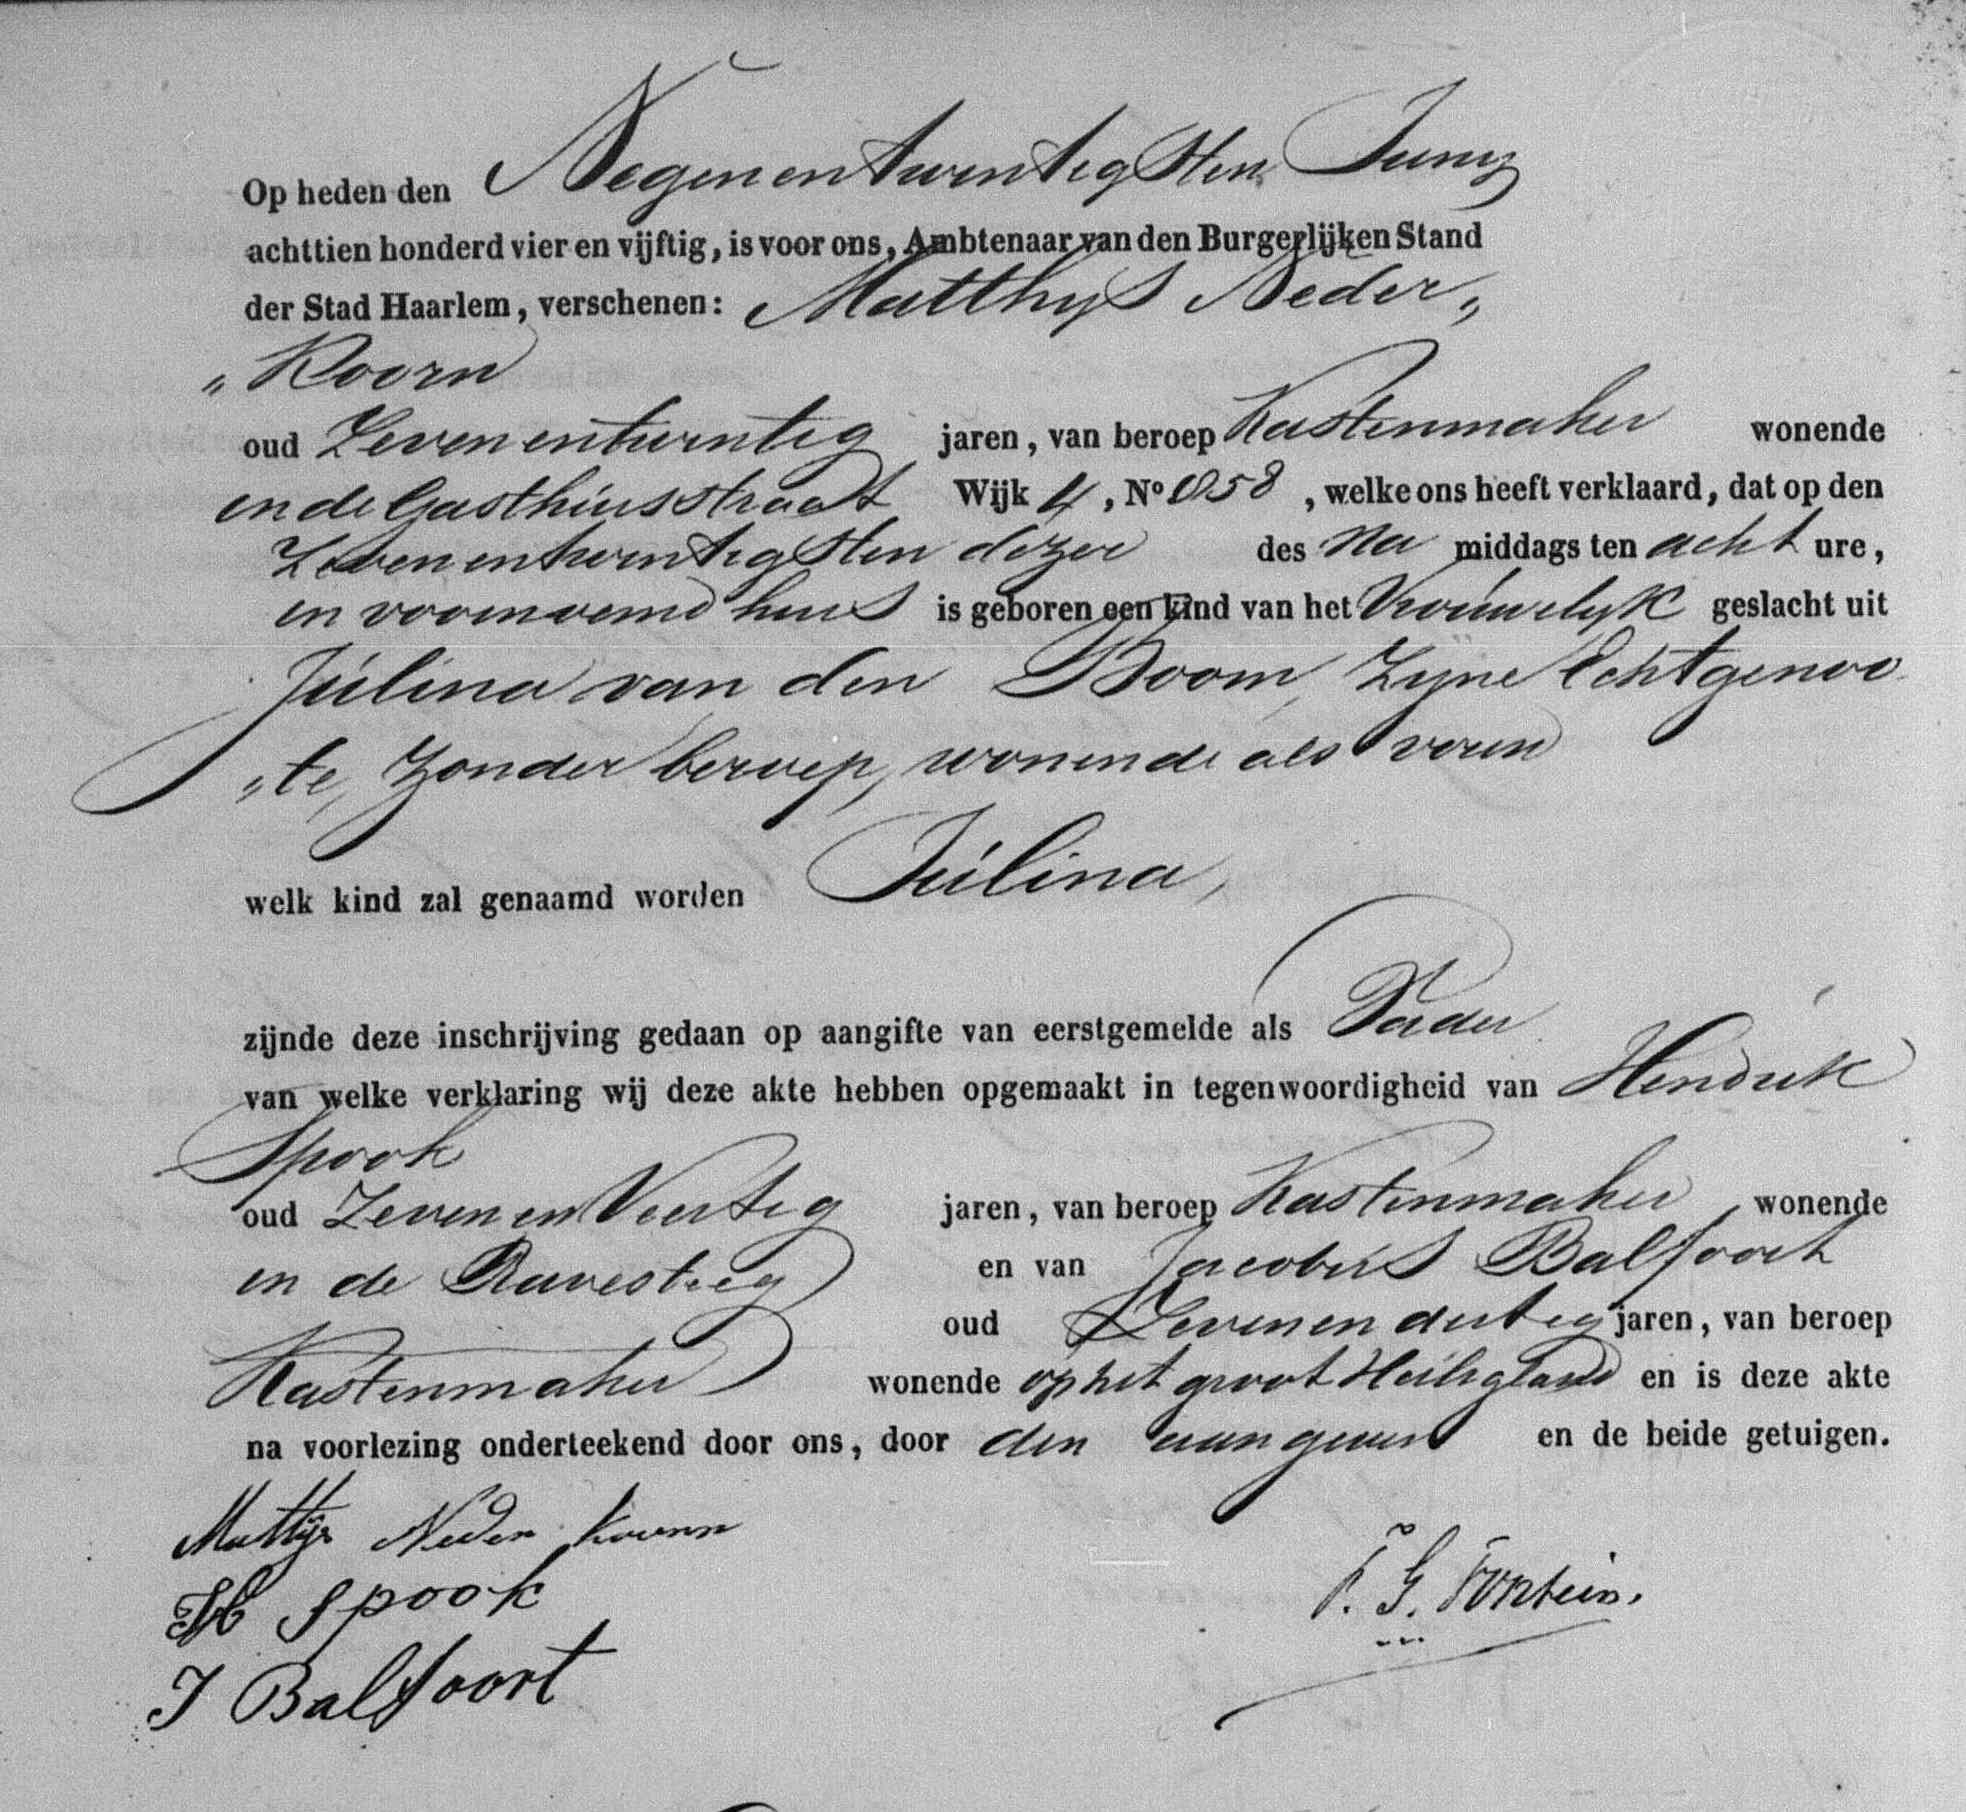 Op heden den Negenentwintigsten Juny
achttien honderd vier en vijftig, is voor ons, Ambtenaar van den Burgerlijken Stand
der Stad Haarlem, verschenen: Matthys Neder„
„Koorn
oud Zevenentwintig jaren, van beroep Kastenmaker wonende
in de Gasthuisstraat Wijk 4, No 858, welke ons heeft verklaard, dat op den
Zevenentwintigsten dezer des na middags ten acht ure,
in voornoemd huis is geboren een kind van het Vrouwelyk geslacht uit
Julina van den Boom, Zyne Echtgenoo
„te, Zonder beroep, wonende als voren
welk kind zal genaamd worden Julina,
zijnde deze inschrijving gedaan op aangifte van eerstgemelde als Vader
van welke verklaring wij deze akte hebben opgemaakt in tegenwoordigheid van Hendrik
Spook
oud Zeven en Veertig jaren, van beroep Kastenmaker, wonende
in de Ravesteeg en van Jacobus Balfoort
oud Zevenendertig jaren, van beroep
Kastenmaker wonende op het groot Heiligland en is deze akte
na voorlezing onderteekend door ons, door den aangever en de beide getuigen.
Mattijs Neder Koorn
H Spook
J Balfoort
G. Fontein.